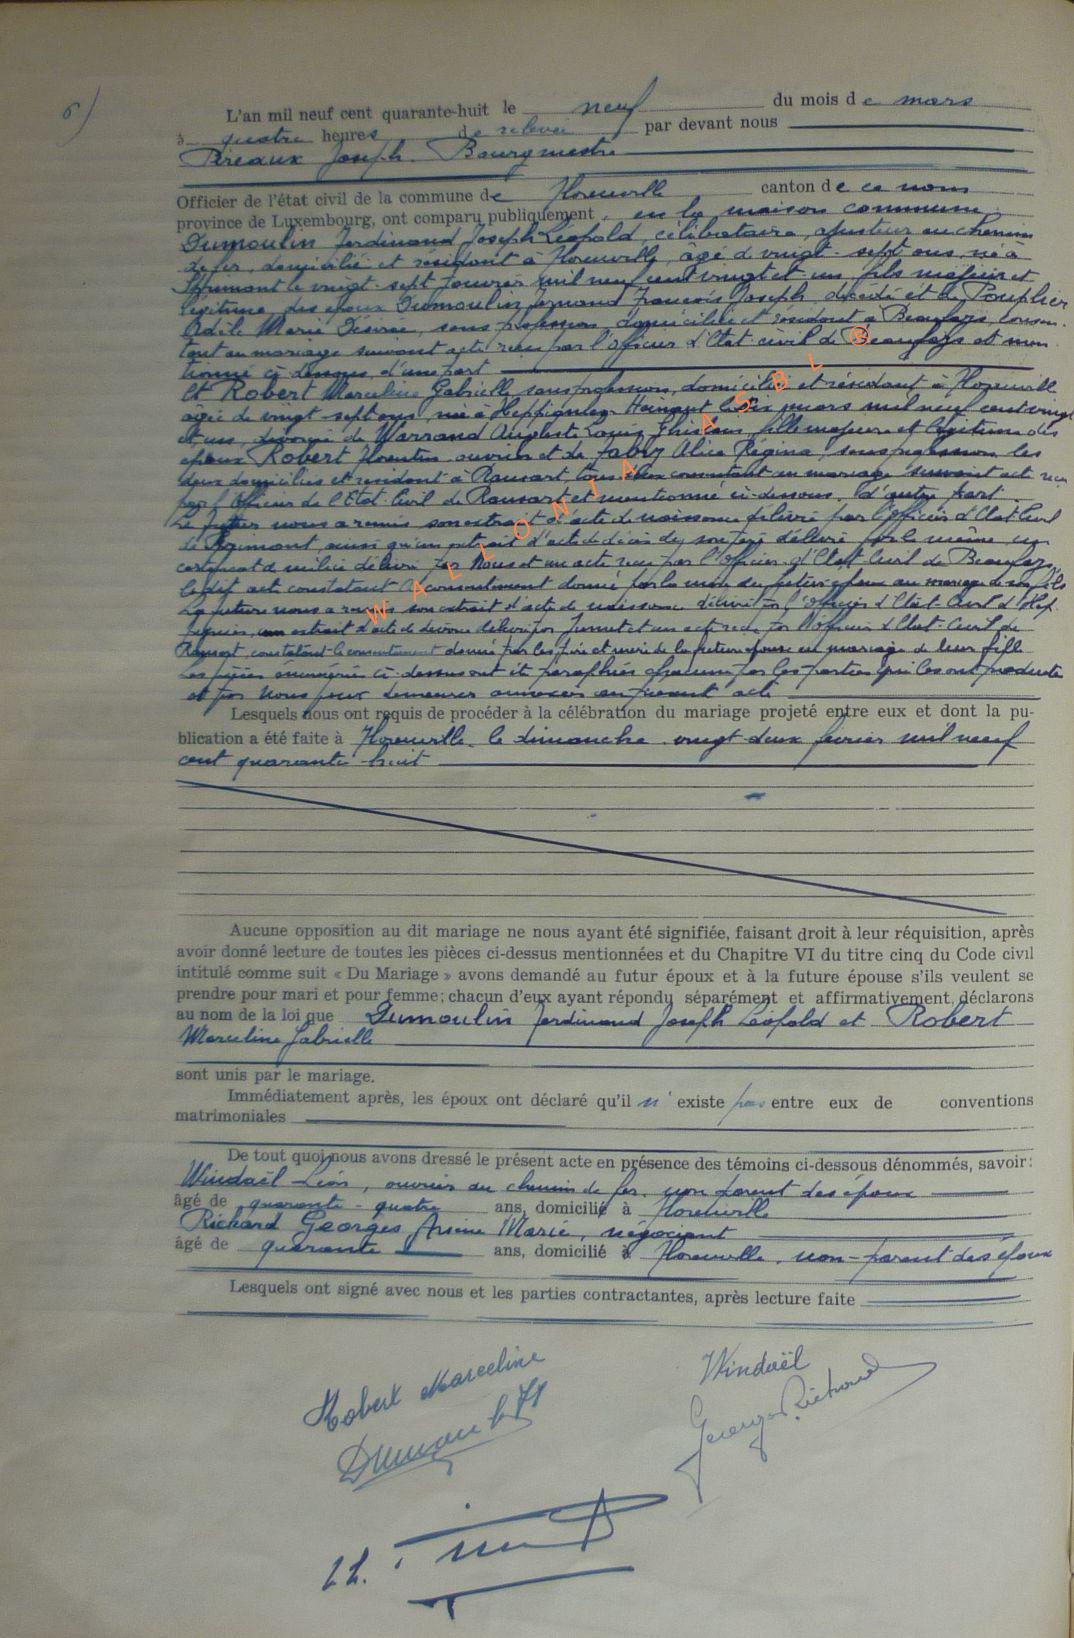 6)
L'an mil neuf cent quarante-huit le neuf du mois de mars
à quatre heures de relevée par devant nous
Pireaux Joseph. Bourgmestre
Officier de l'état civil de la commune de Florenville canton de ce nom
province de Luxembourg, ont comparu publiquement, en la maison commune
Dumoulin Ferdinand Joseph Léopold, célibataire, ajusteur au chemin
de fer, domicilié et résidant à Florenville, âgé de vingt-sept ans, né à
le vingt-sept Janvier mil neuf cent vingt et un, fils majeur et
légitime des époux Dumoulin Fernand François Joseph, décédé et de Pouplier
Adèle Marie Désirée, sans profession domiciliée et résidant à Beaufays, consen-
tant au mariage suivant acte reçu par l'Officier d'Etat-civil de Beaufays et men-
tionné ci-dessous, d'une part
Et Robert Marceline Gabrielle sans profession, domiciliée et résidant à Florenville
âgée de vingt-sept ans, née à Heppignies Hainaut le dix mars mil neuf cent vingt
et un, divorcée de Warrand Auguste Louis Ghislain, fille majeure et légitime des
époux Robert Florentin, ouvrier et de Fabry Alice Régina, sans profession les
deux domiciliés et résidant à Ransart, tous deux consentant au mariage suivant acte reçu
par l'Officier de l'Etat-Civil de Ransart et mentionné ci-dessous, d'autre part
Le futur nous a remis son extrait d'acte de naissance délivré par l'Officier d'Etat-Civil
de ainsi qu'un extrait d'acte de décès de son père délivré par le même, un
certificat de milice délivré par Nous et un acte reçu par l'Officier d'Etat-Civil de Beaufays
le dit acte constatant le consentement donné par la mère du futur époux au mariage de son fils
La future nous a remis son extrait d'acte de naissance délivré par l'Officier d'Etat-Civil d'Hep-
pignies, un extrait d'acte de divorce délivré par Jumet et un acte reçu par l'Officier d'Etat-Civil de
Ransart, constatant le consentement donné par les père et mère de la future épouse au mariage de leur fille
Les pièces énumérées ci-dessus ont été paraphées chacune par les parties qui les ont produites
et par Nous pour demeurer annexées au présent acte
Lesquels nous ont requis de procéder à la célébration du mariage projeté entre eux et dont la pu-
blication a été faite à Florenville le dimanche vingt-deux février mil neuf
cent quarante-huit
Aucune opposition au dit mariage ne nous ayant été signifiée, faisant droit à leur réquisition, après
avoir donné lecture de toutes les pièces ci-dessus mentionnées et du Chapitre VI du titre cinq du Code civil
intitulé comme suit « Du Mariage » avons demandé au futur époux et à la future épouse s'ils veulent se
prendre pour mari et pour femme; chacun d'eux ayant répondu séparément et affirmativement, déclarons
au nom de la loi que Dumoulin Ferdinand Joseph Léopold et Robert
Marceline Gabrielle
sont unis par le mariage.
Immédiatement après, les époux ont déclaré qu'il n'existe pas entre eux de conventions
matrimoniales
De tout quoi nous avons dressé le présent acte en présence des témoins ci-dessous dénommés, savoir:
Windaël Léon, ouvrier au chemin de fer, non parent des époux
âgé de quarante-quatre ans, domicilié à Florenville
Richard Georges Arsène Marie, négociant
âgé de quarante ans, domicilié à Florenville, non-parent des époux
Lesquels ont signé avec nous et les parties contractantes, après lecture faite
Robert Marceline
Windaël
Georges Richard
WALLONIA ASBL ®